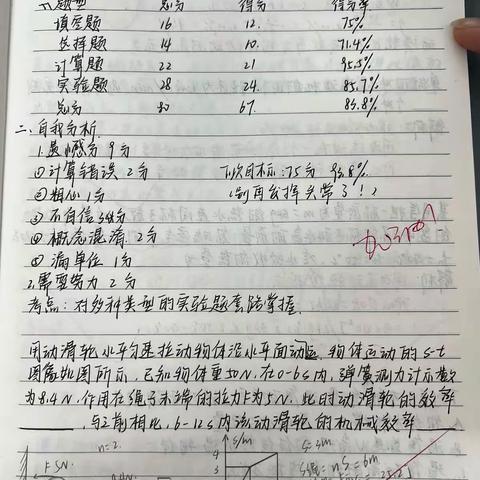 题型 总分 得分 得分率
填空题 16 12. 75%
选择题 14 10. 71.4%
计算题 22 21 95.5%
实验题 28 24. 85.7%
总分 80 67. 83.8%
二、自我分析.
1.遗憾分 9分
①计算错误 2分 下次目标:75分 93.8%
②粗心 1分 (别再会挥失常了!)
③不自信 3分
④概念混淆 2分
⑤漏单位 1分
2.需要努力 2分
考点:对多种类型的实验题套路掌握.
加油
用动滑轮水平匀速拉动物体沿水平面动,物体运动的s-t
图像如图所示,已知物体重50N.在0-6s内,弹簧测力计示数
为8.4N.作用在绳子末端的拉力F为5N.此时动滑轮的效率
,与之前相比,6-12s内该动滑轮的机械效率
n=2. s/m S=3m.
F 5N. 4 S绳=nS=6m
8.4N 3